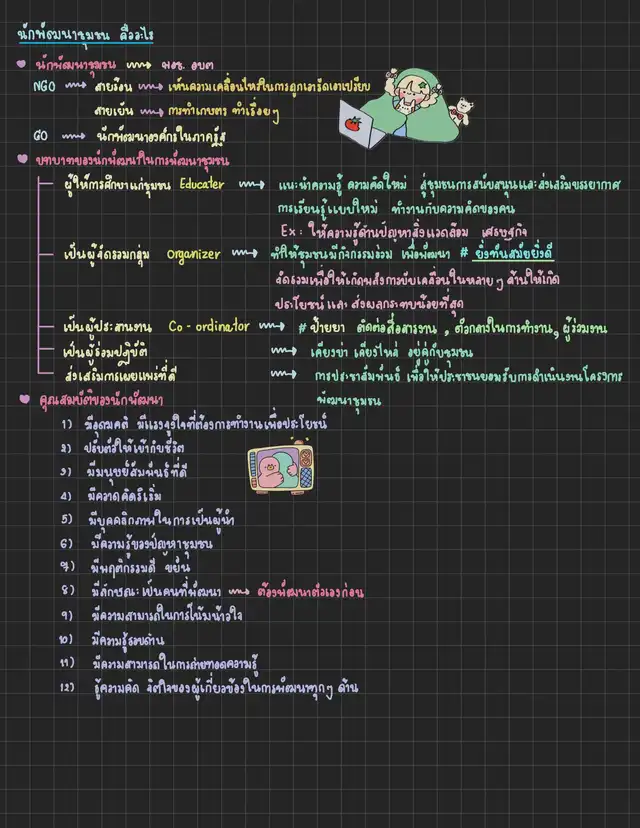 นักพัฒนาชุมชน คืออะไร
นักพัฒนาชุมชน พอช. อบต
NGO สายร้อน เห็นความเคลื่อนไหวในการถูกเอารัดเอาเปรียบ
สายเย็น การทำเกษตร ทำเรื่อยๆ
GO นักพัฒนาองค์กรในภาครัฐ
บทบาทของนักพัฒนาในการพัฒนาชุมชน
ผู้ให้การศึกษาแก่ชุมชน Educater แนะนำความรู้ ความคิดใหม่ สู่ชุมชนการสนับสนุนและส่งเสริมบรรยากาศ
การเรียนรู้แบบใหม่ ทำงานกับความคิดของคน
Ex : ให้ความรู้ด้านปัญหาสิ่งแวดล้อม เศรษฐกิจ
เป็นผู้จัดรวมกลุ่ม Organizer ทำให้ชุมชนมีกิจกรรมร่วม เพื่อพัฒนา # ยิ่งทันสมัยยิ่งดี
จัดรวมเพื่อให้เกิดพลังการขับเคลื่อนในหลายๆ ด้านให้เกิด
ประโยชน์และ ส่งผลกระทบน้อยที่สุด
เป็นผู้ประสานงาน Co - ordinator # ป้ายยา ติดต่อสื่อสารงาน , ตัวกลางในการทำงาน, ผู้ร่วมงาน
เป็นผู้ร่วมปฏิบัติ เคียงบ่า เคียงไหล่ อยู่คู่กับชุมชน
ส่งเสริมการเผยแพร่ที่ดี การประชาสัมพันธ์ เพื่อให้ประชาชนยอมรับการดำเนินงานโครงการ
พัฒนาชุมชน
คุณสมบัติของนักพัฒนา
1) มีอุดมคติ มีแรงจูงใจที่ต้องการทำงานเพื่อประโยชน์
2) ปรับตัวให้เข้ากับชีวิต
3) มีมนุษย์สัมพันธ์ที่ดี
4) มีความคิดริเริ่ม
5) มีบุคคลิกภาพในการเป็นผู้นำ
6) มีความรู้ของปัญหาชุมชน
7) มีพฤติกรรมดี ขยัน
8) มีลักษณะเป็นคนที่พัฒนา ต้องพัฒนาตัวเองก่อน
9) มีความสามารถในการโน้มน้าวใจ
10) มีความรู้รอบด้าน
11) มีความสามารถในการถ่ายทอดความรู้
12) รู้ความคิด จิตใจของผู้เกี่ยวข้องในการพัฒนาทุกๆ ด้าน